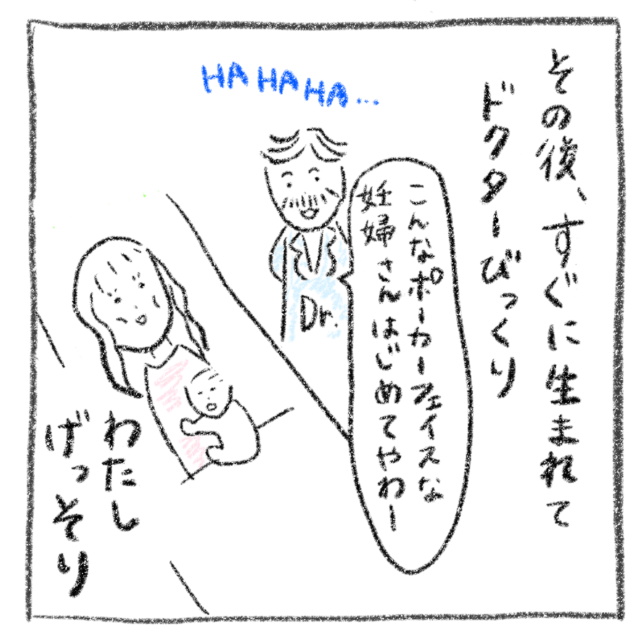 その後、すぐに生まれて
ドクターびっくり
HA HA HA...
こんなポーカーフェイスな
妊婦さんはじめてやわー
Dr.
わたし
げっそり